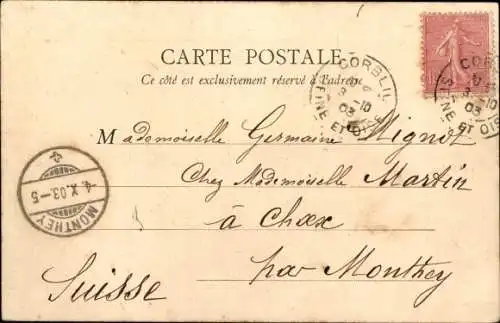 CARTE POSTALE
Ce côté est exclusivement réservé à l'adresse
CORBEIL
3 -10
03
SEINE ET OISE
CORB
3 -10
03
SEINE ET OIS
Mademoiselle Germaine Mignot
Chez Mademoiselle Martin
à Choëx
par Monthey
Suisse
4.X.03.-5
MONTHEY